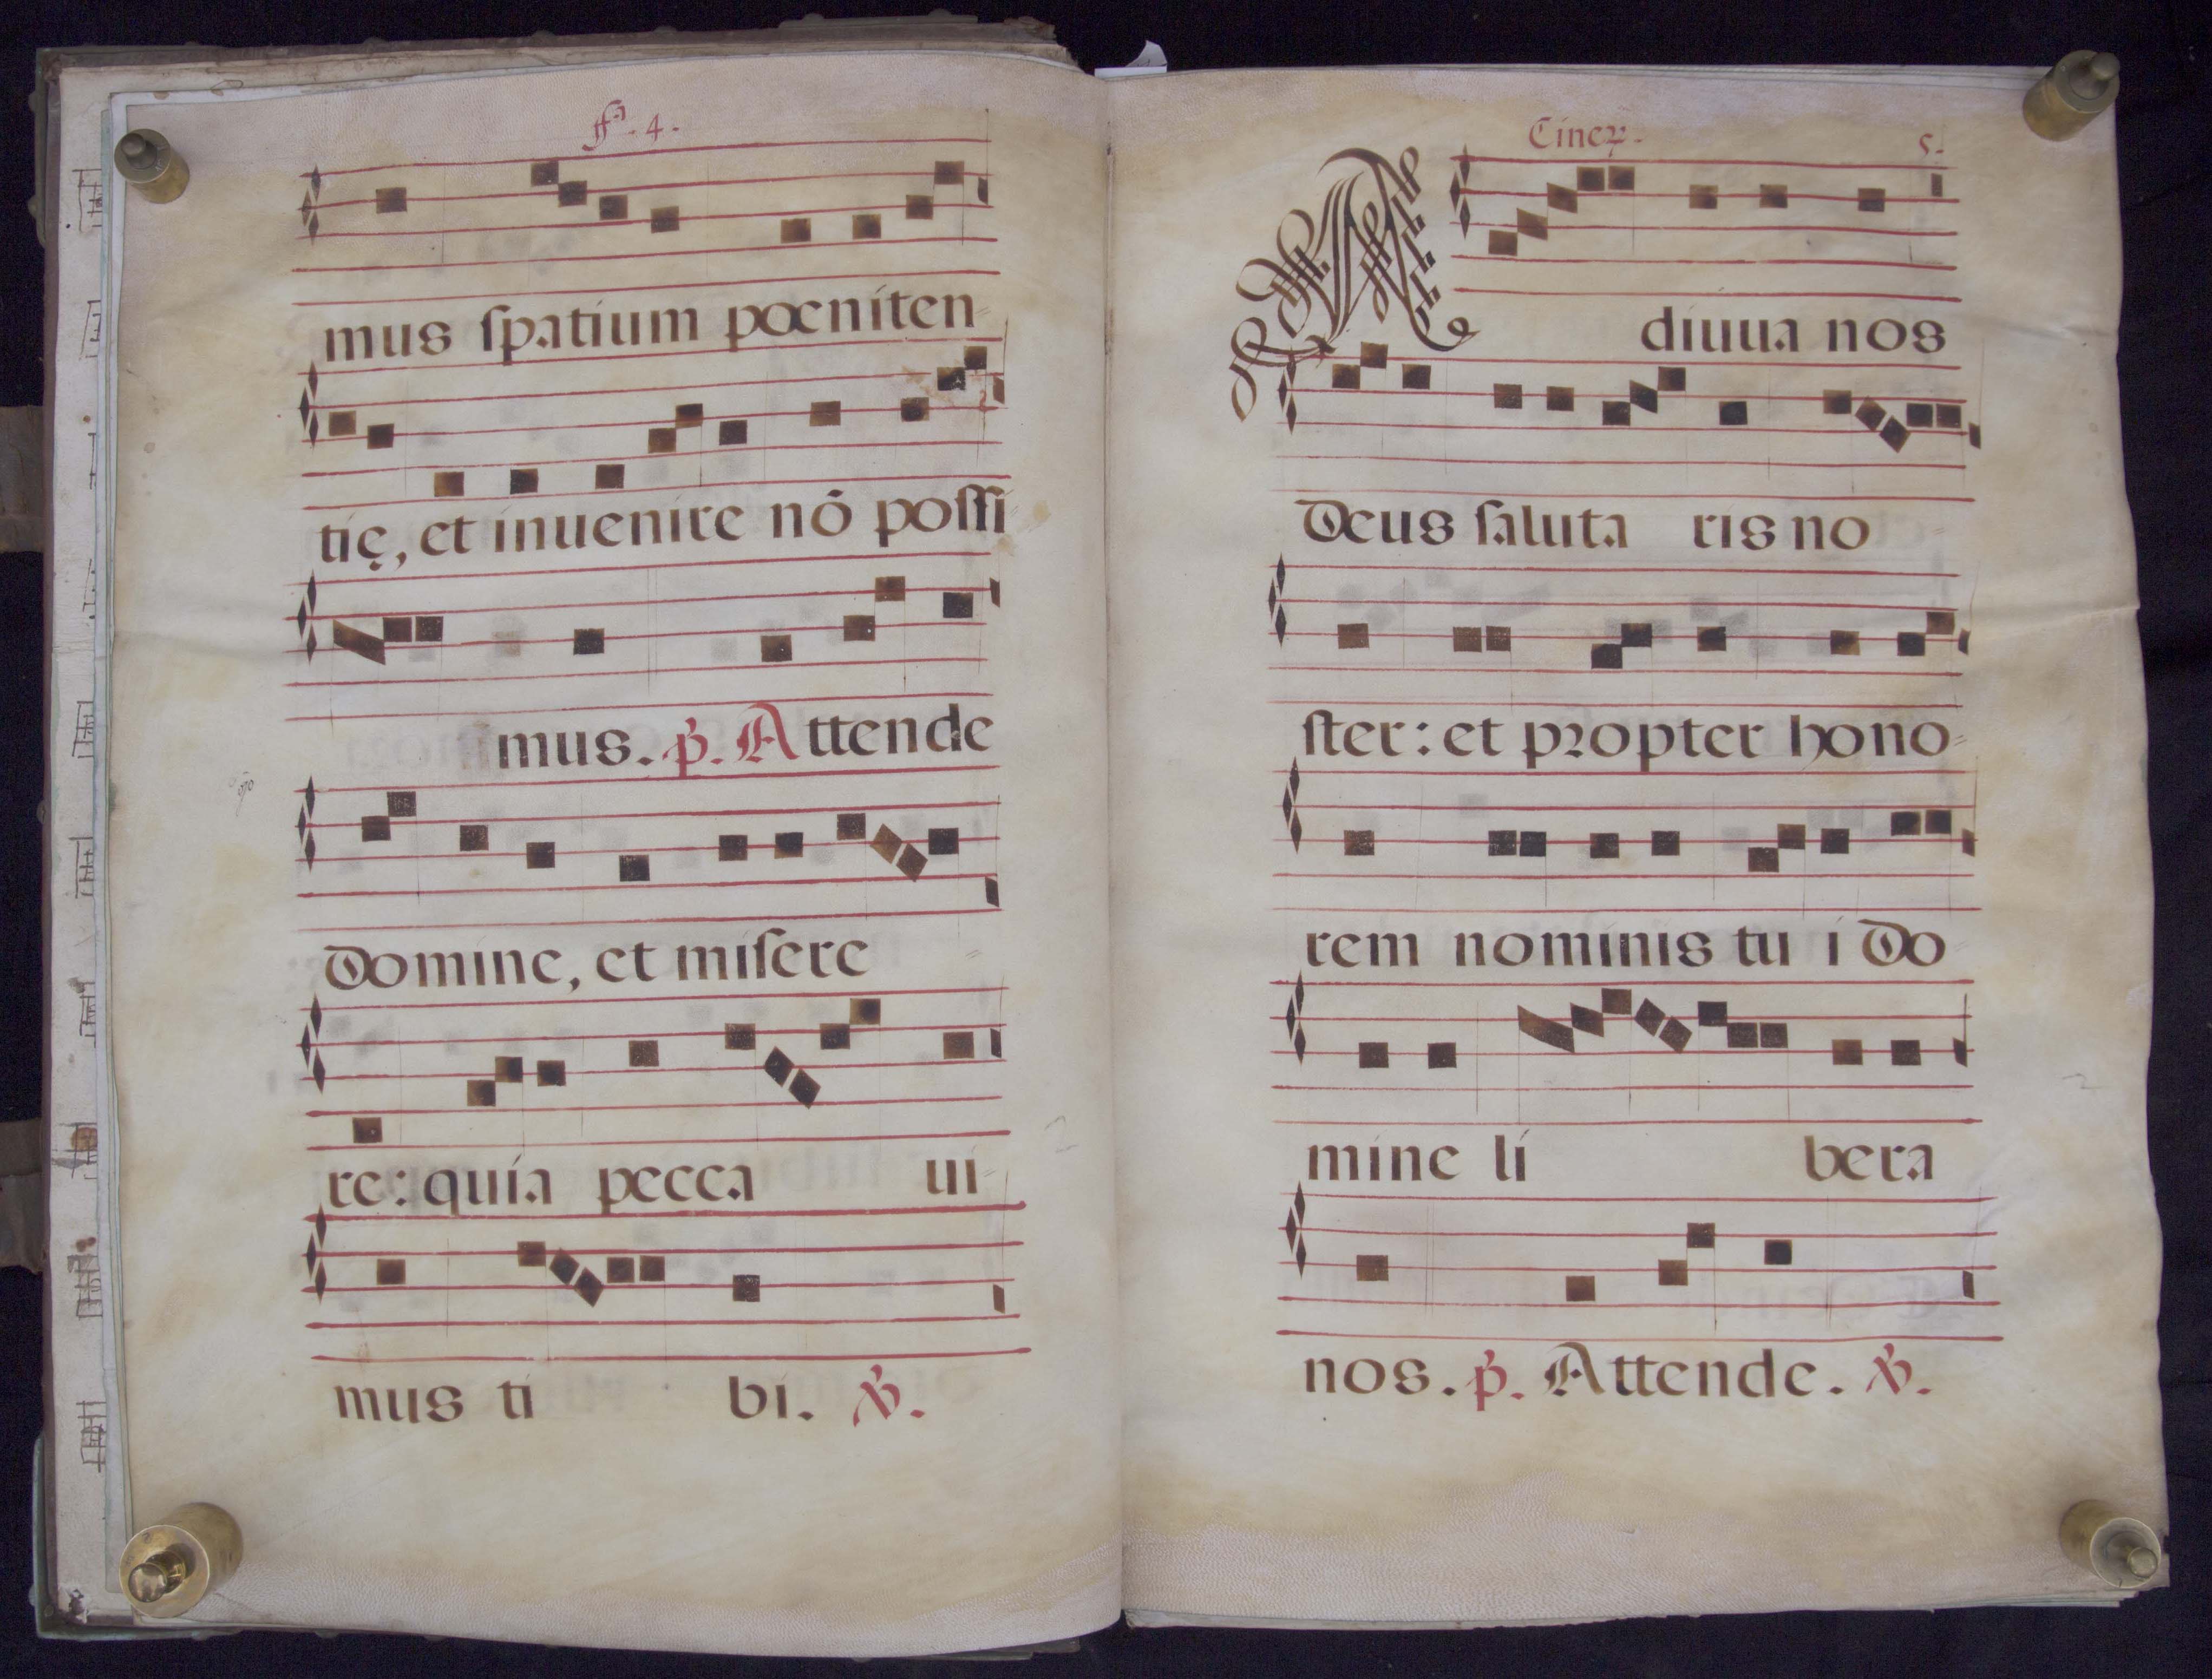 ff^a. 4.
mus ſpatium pœniten=
tię, et inuenire nõ poſſi
mus. p̃. Attende
Domine, et miſere =
re: quia pecca ui=
mus ti bi. ℣.
Ciner. 5.
A diuua nos
Deus ſaluta ris no =
ſter: et propter hono=
rem nominis tu i Do
mine li bera
nos. p̃. Attende. ℣.